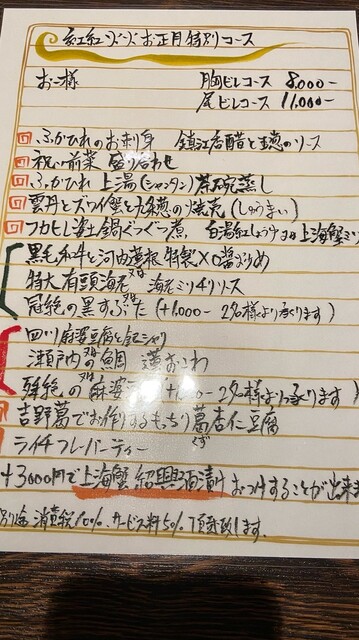 紅紅シズ お正月特別コース
お一人様 胸ビレコース 8,000-
尾ビレコース 11,000-
ふかひれのお刺身 鎮江香醋と葱のソース
祝い前菜 盛り合わせ
ふかひれ 上湯(シャンタン)茶碗蒸し
雲丹とズワイ蟹と九条葱の焼売(しゅうまい)
フカヒレ姿土鍋ぐつぐつ煮, 白湯紅しょうゆ 又は 上海蟹ミソ
黒毛和牛と河内蓮根 特製XO醤炒め
又は
特大有頭海老 海老ミソチリソース
又は
冠絶の黒すぶた (+1,000- 2名様より承ります)
四川麻婆豆腐と銀シャリ
又は
瀬戸内の鯛 蓮おこわ
又は
冠絶の麻婆 +1,000- 2名様より承ります)
吉野葛でお作りするもっちり葛杏仁豆腐
くず
ライチフレーバーティー
+3000円で上海蟹 紹興酒漬け おつけすることが出来ま
別途 消費税10%. サービス料5% 頂戴致します.